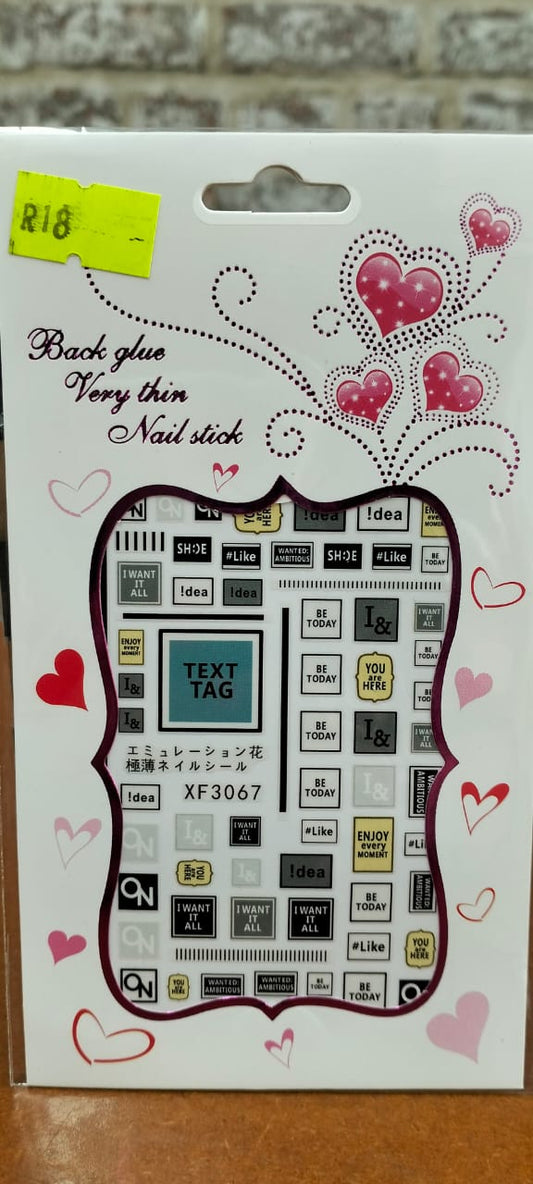 R18
Back glue
Very thin
Nail stick
YOU are HERE
!dea
!dea
ENJOY every MOMENT
SH:)E
#Like
WANTED: AMBITIOUS
SH:)E
#Like
BE TODAY
I WANT IT ALL
!dea
!dea
BE TODAY
I&
I WANT IT ALL
ENJOY every MOMENT
TEXT TAG
BE TODAY
YOU are HERE
BE TODAY
I&
I&
BE TODAY
I&
I WANT IT ALL
エミュレーション花
極薄ネイルシール
XF3067
!dea
BE TODAY
I&
WANTED: AMBITIOUS
I&
I WANT IT ALL
#Like
ENJOY every MOMENT
#Li
YOU are HERE
I&
!dea
NO
I WANT IT ALL
I WANT IT ALL
I WANT IT ALL
BE TODAY
WANTED: AMBITIOUS
NO
#Like
YOU are HERE
NO
YOU are HERE
WANTED: AMBITIOUS
WANTED: AMBITIOUS
BE TODAY
BE TODAY